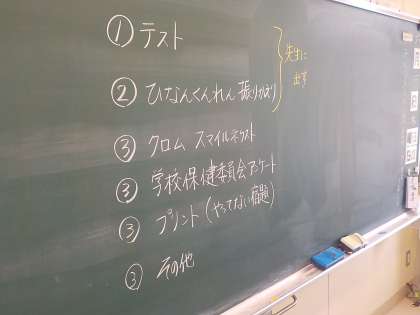 ① テスト
② ひなんくんれん 振りかえり
先生に
出す
③ クロム スマイルネクスト
③ 学校保健委員会アンケート
③ プリント(やってない宿題)
③ その他